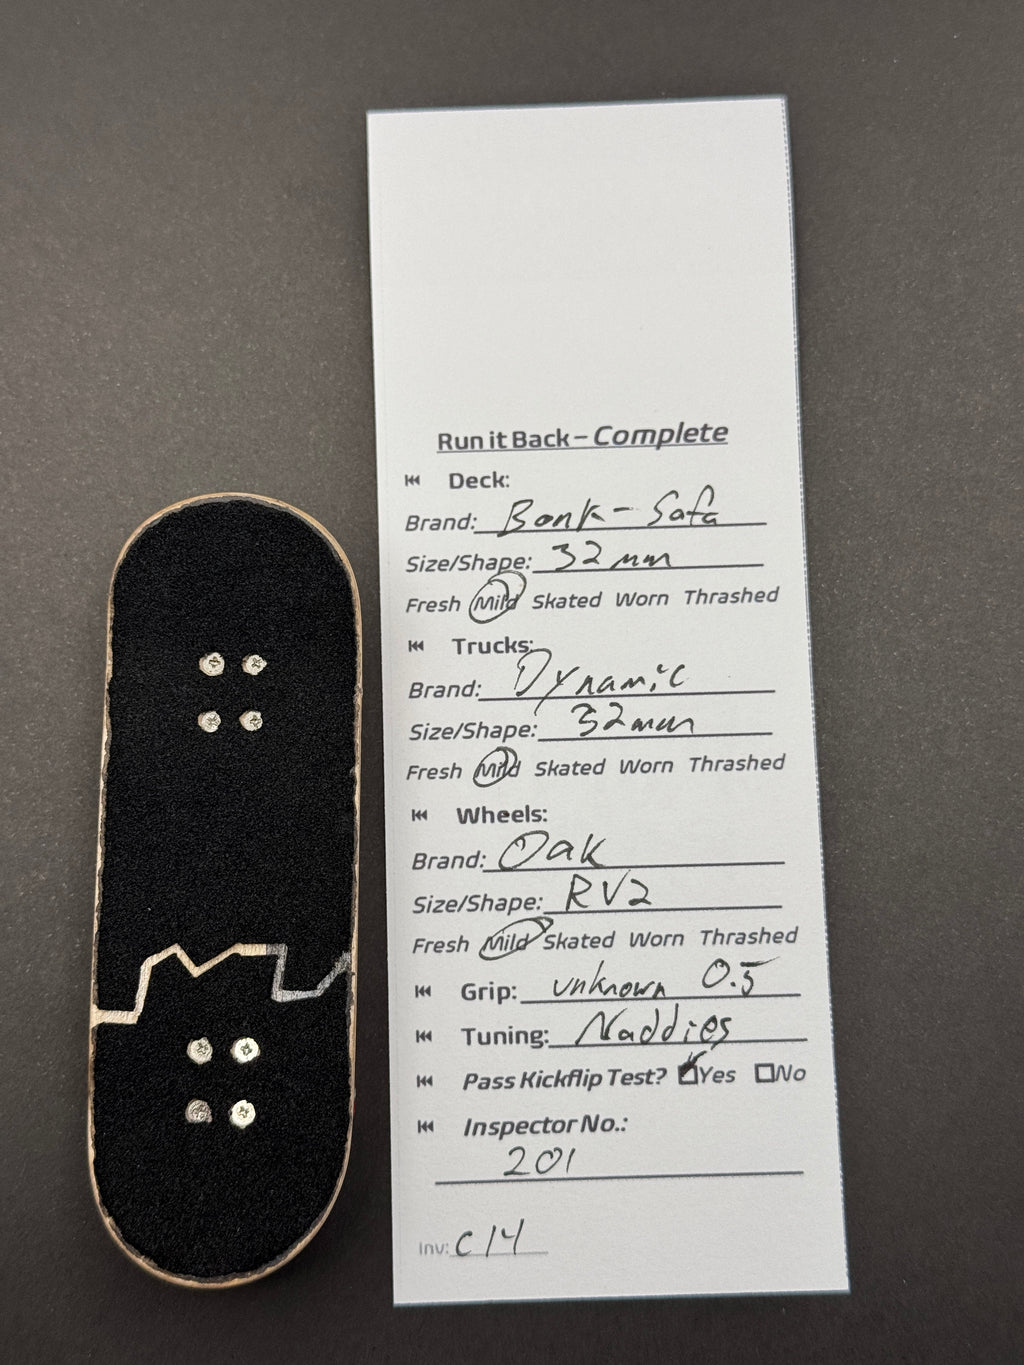 Run it Back – Complete
Deck:
Brand: Bonk - Safa
Size/Shape: 32mm
Fresh Mild Skated Worn Thrashed
Trucks:
Brand: Dynamic
Size/Shape: 32mm
Fresh Mild Skated Worn Thrashed
Wheels:
Brand: Oak
Size/Shape: RV2
Fresh Mild Skated Worn Thrashed
Grip: unknown 0.5
Tuning: Naddies
Pass Kickflip Test? Yes No
Inspector No.:
201
Inv: C14